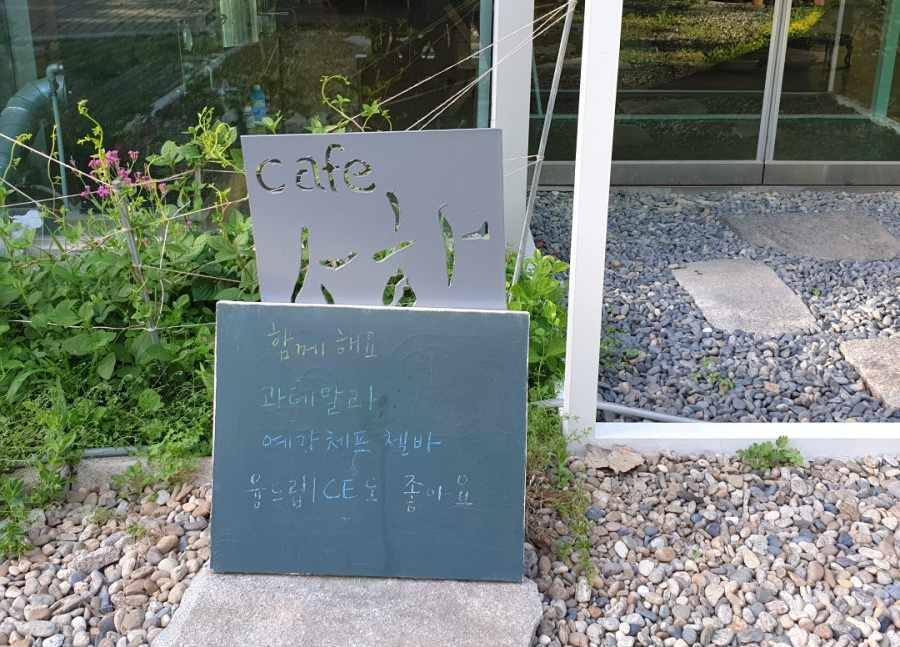 cafe
함께 해요
과테말라
예가체프 첼바
융드립ICE도 좋아요